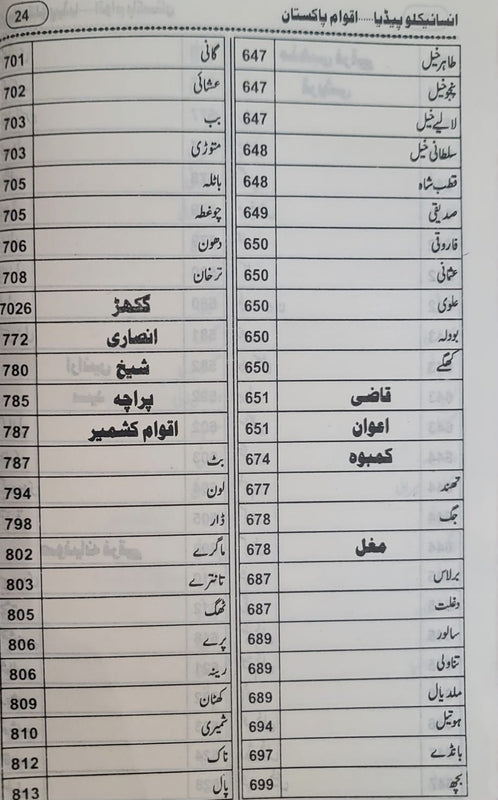 انسائیکلوپیڈیا.....اقوام پاکستان 24
طاہر خیل 647
پنجو خیل 647
لالے خیل 647
سلطانی خیل 648
قطب شاہ 648
صدیقی 649
فاروقی 650
عثمانی 650
علوی 650
بودلہ 650
کھگے 650
قاضی 651
اعوان 651
کمبوہ 674
تھند 677
جگ 678
مغل 678
برلاس 687
دغلت 687
سالور 689
تناولی 689
ملدیال 689
ہوتیل 694
بانڈے 697
بچھ 699
گانی 701
عشائی 702
بب 703
متوڑی 703
باٹلہ 705
چوغطہ 705
دھون 706
ترخان 708
گکھڑ 7026
انصاری 772
شیخ 780
پراچہ 785
اقوام کشمیر 787
بٹ 787
لون 794
ڈار 798
ماگرے 802
تانترے 803
ٹھگ 805
پرے 806
رینہ 806
کھٹان 809
شمیری 810
ناک 812
پال 813